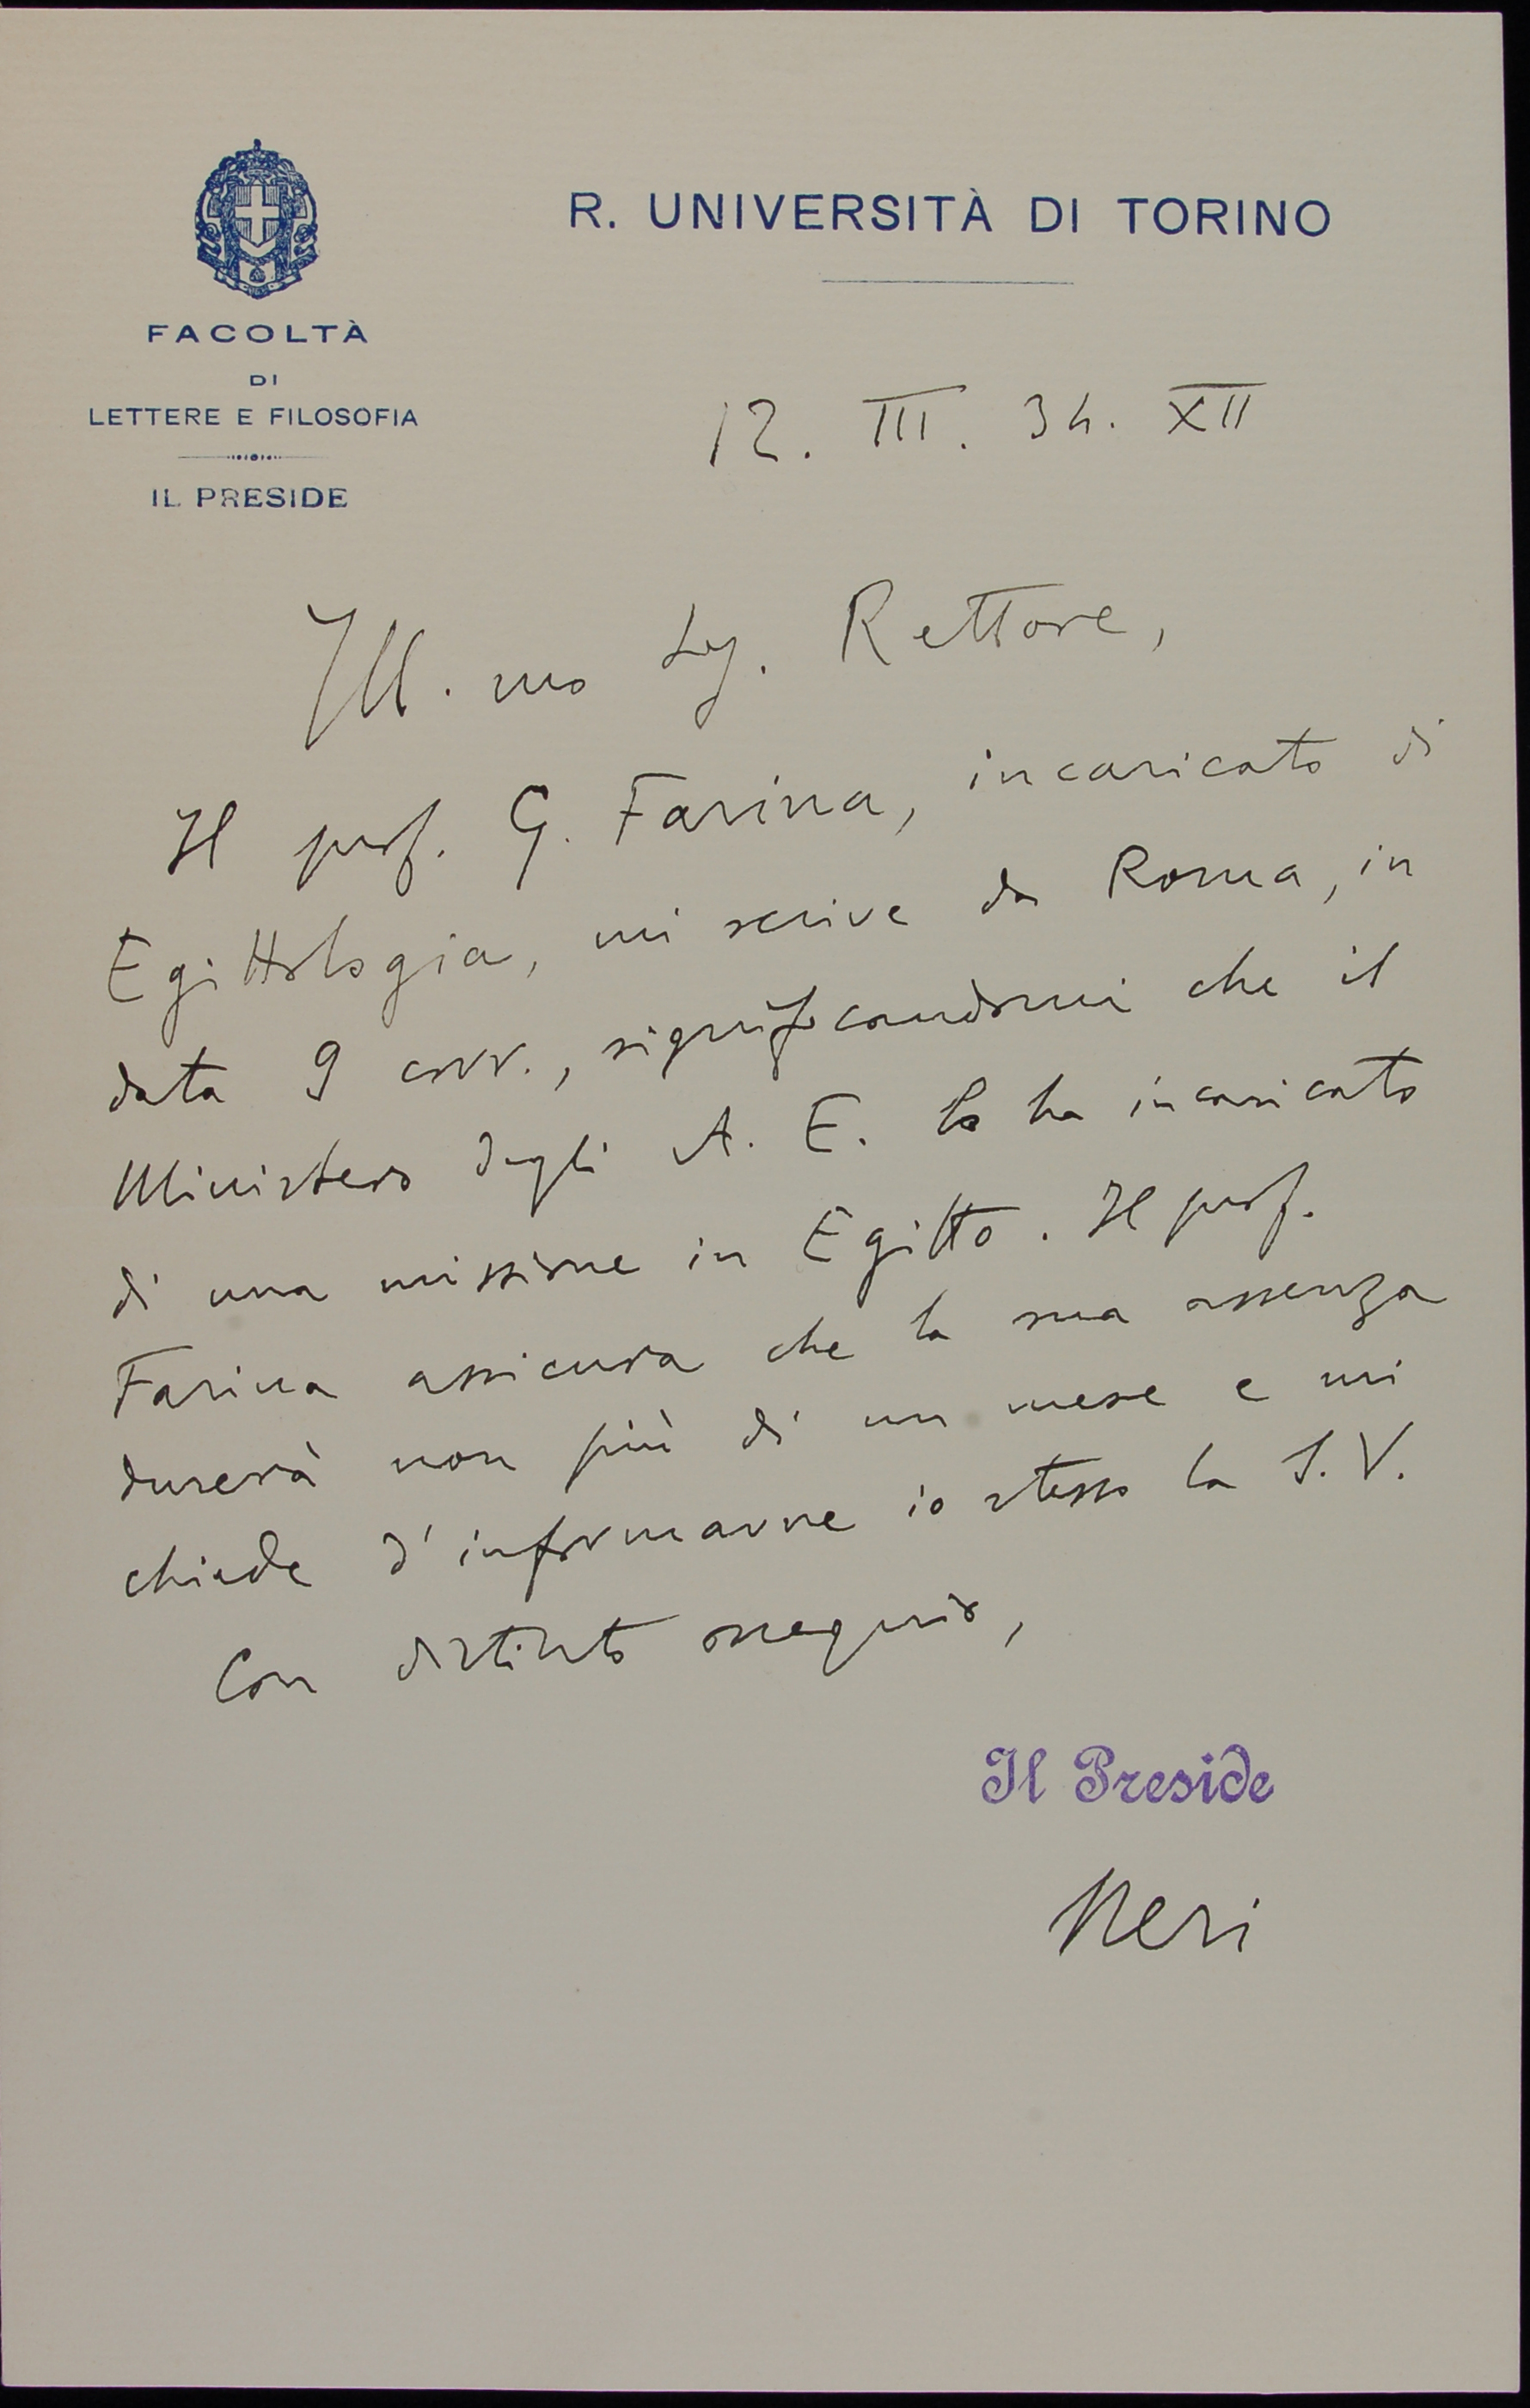 R. UNIVERSITÀ DI TORINO
FACOLTÀ
DI
LETTERE E FILOSOFIA
IL PRESIDE
12. III. 34. XII
Ill.mo Sig. Rettore,
Il prof. G. Farina, incaricato di
Egittologia, mi scrive da Roma, in
data 9 corr., significandomi che il
Ministero degli A. E. lo ha incaricato
di una missione in Egitto. Il prof.
Farina assicura che la sua assenza
durerà non più di un mese e mi
chiede d'informarne io stesso la S. V.
Con distinto ossequio,
Il Preside
Neri